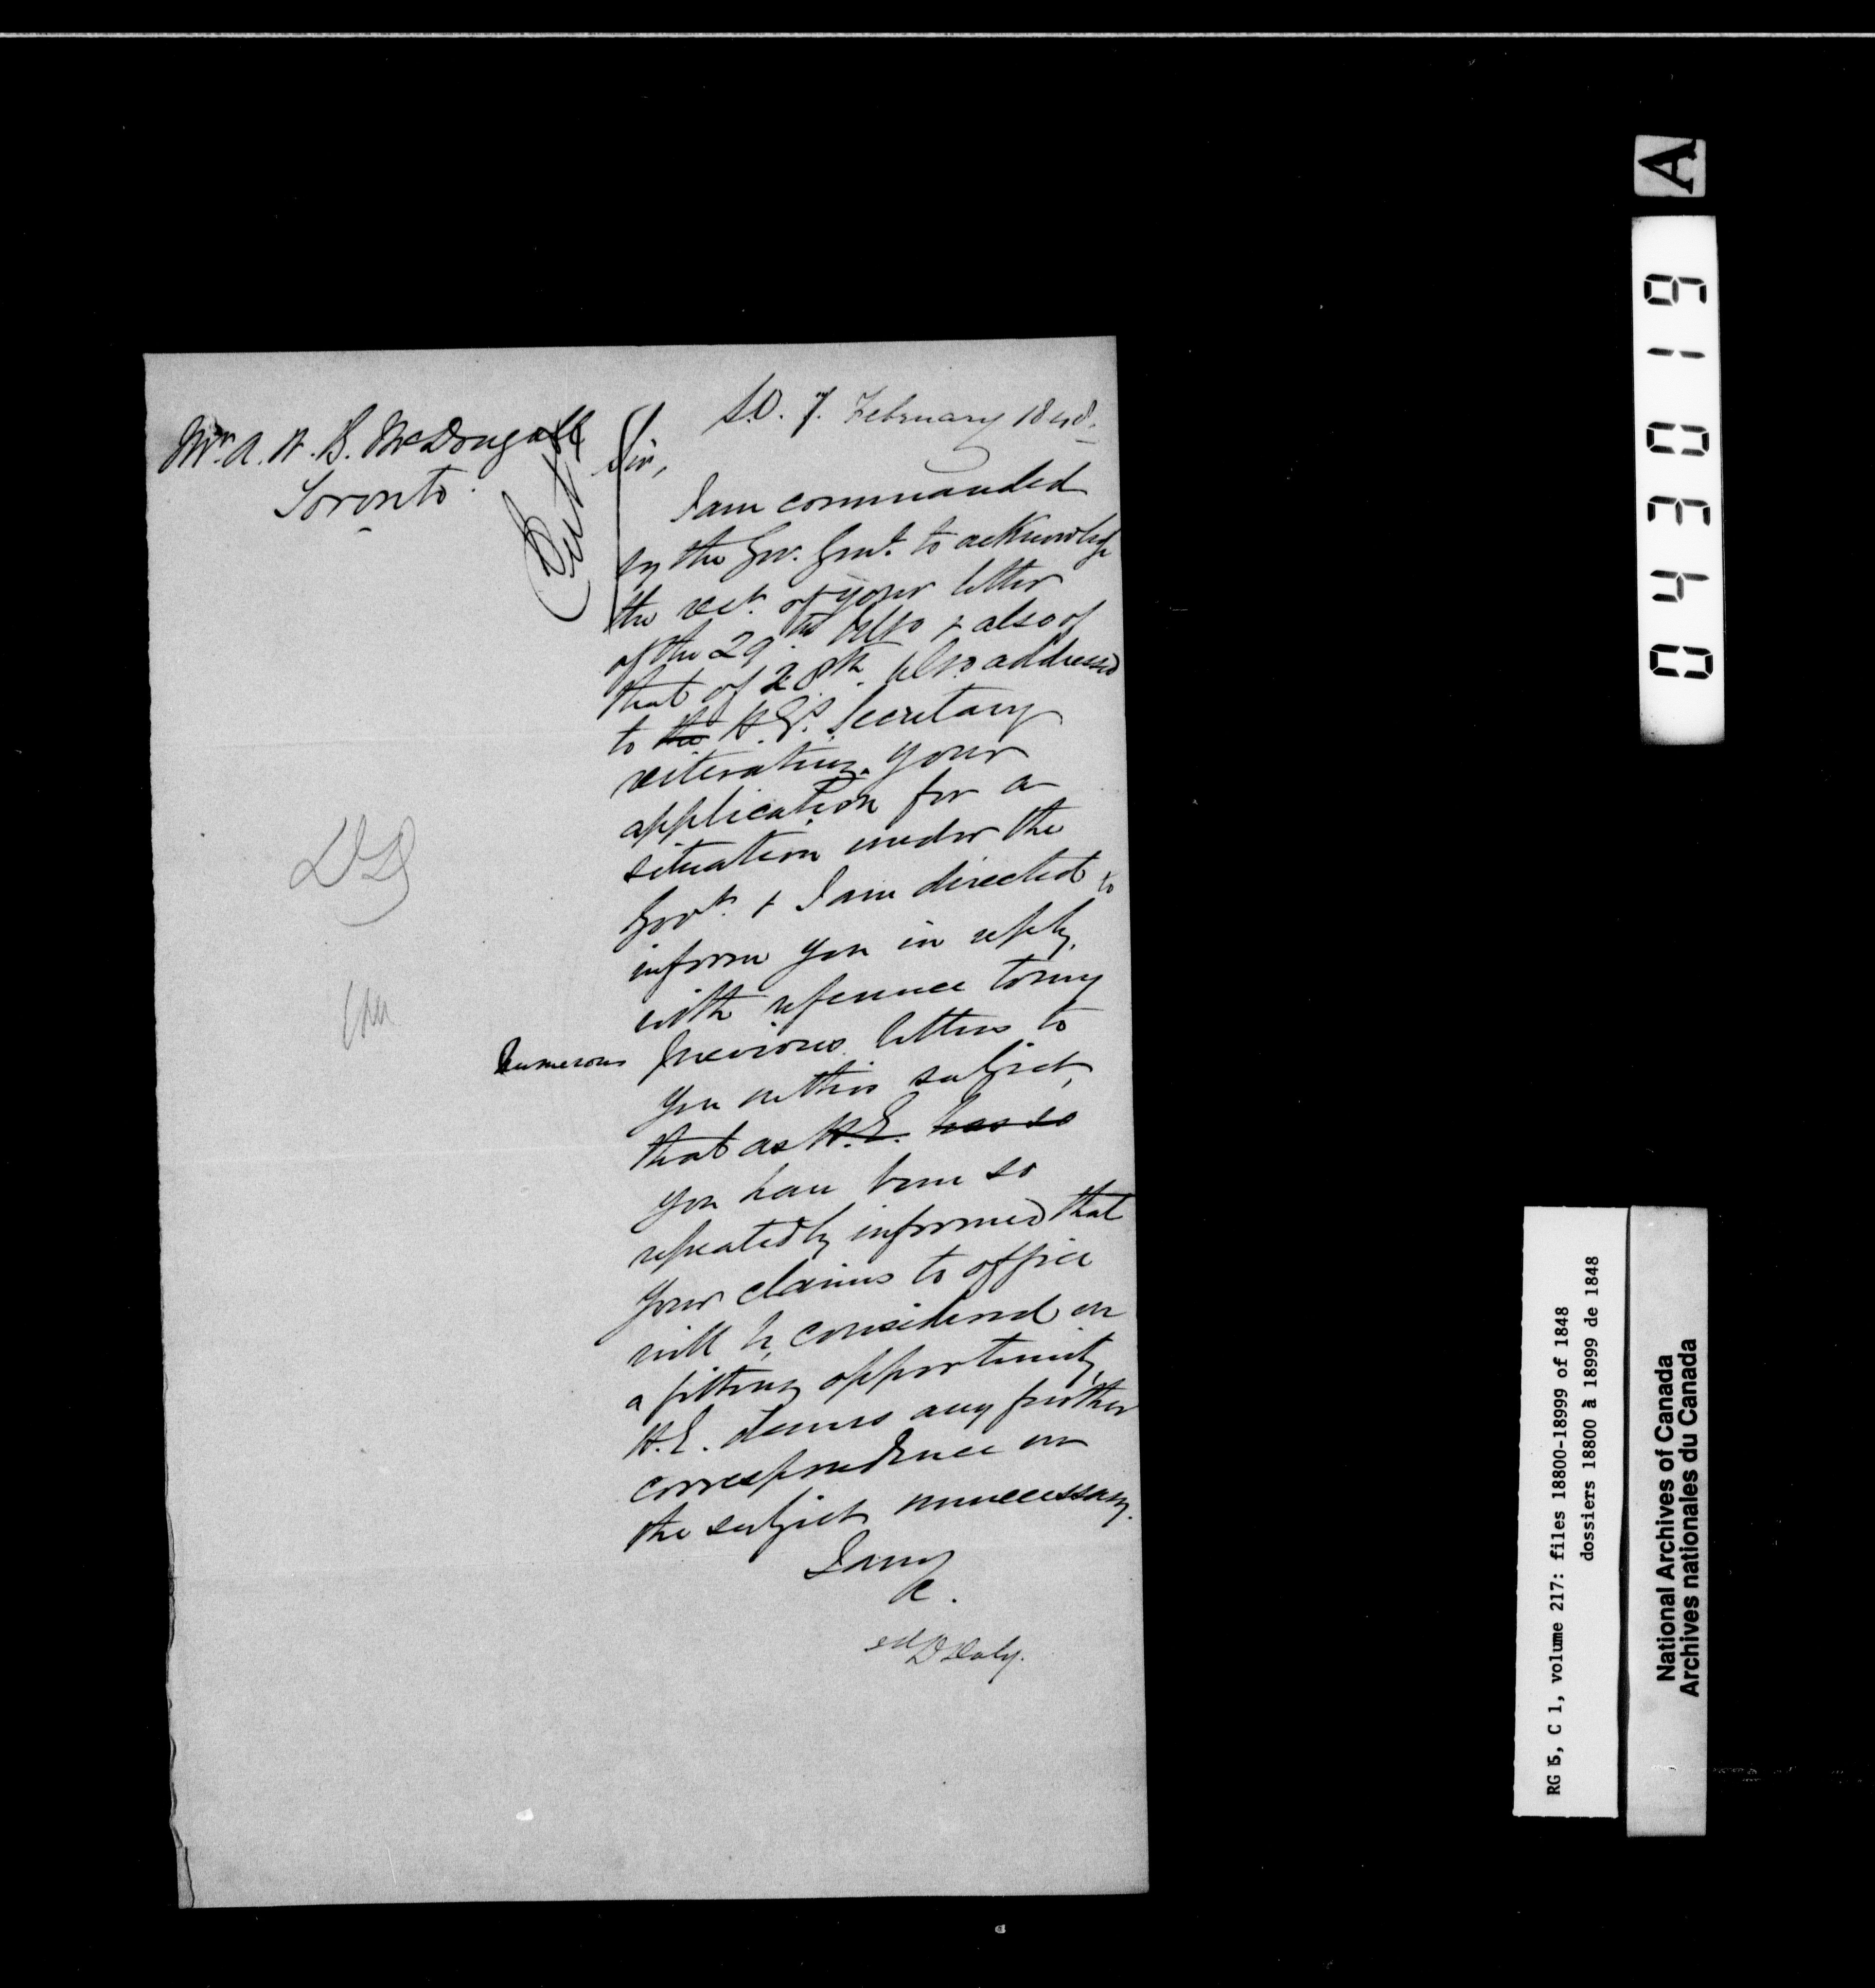 S.O. 7. February 1848.
Mr. A. N. B. McDougall
Toronto.
Sir,
I am commanded
by the Gov. Genl. to acknowledge
the rect. of your letter
of the 29th Ulto & also of
that of 28th. Ulto. addressed
to the H.E's. Secretary
reiterating your
application for a
situation under the
Govt. & I am directed to
inform you in reply,
with reference to my
Numerous previous letters to
you on this subject,
that as H.E. has so
you have been so
repeatedly informed that
your claims to office
will be considered on
a fitting opportunity,
H.E. deems any further
correspondence on
the subject unnecessary.
I am
&c.
sd D Daly.
DD
A
043019
RG 5, C 1, volume 217: files 18800-18999 of 1848
dossiers 18800 à 18999 de 1848
National Archives of Canada
Archives nationales du Canada